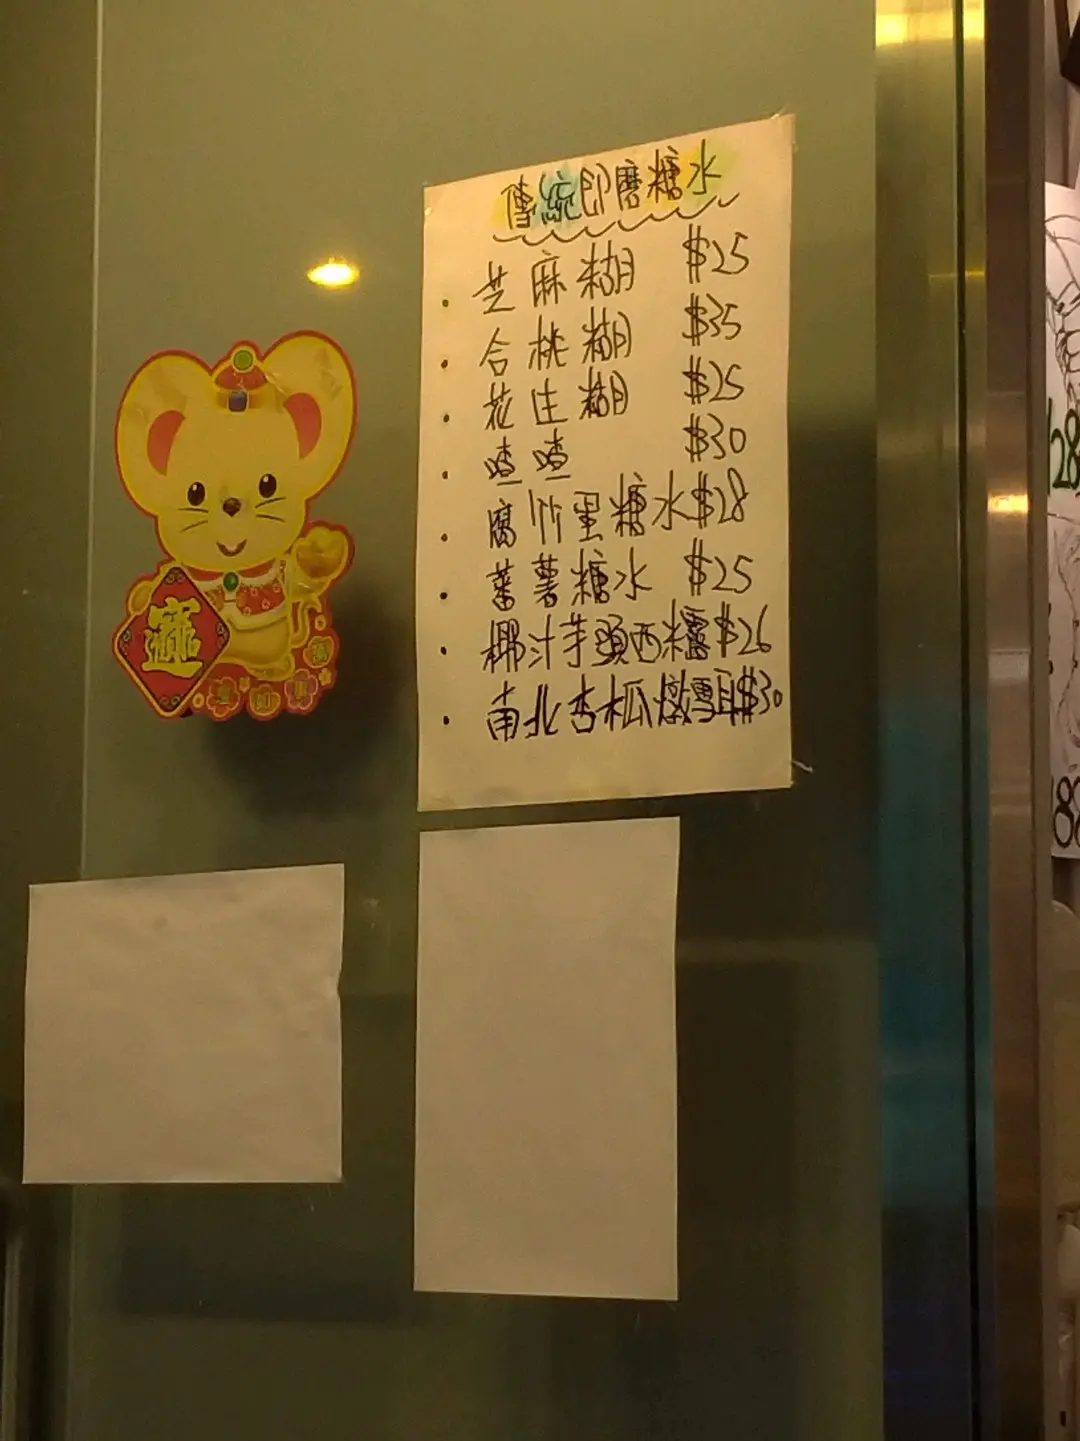 傳統即磨糖水
· 芝麻糊 $25
· 合桃糊 $35
· 花生糊 $25
· 喳喳 $30
· 腐竹蛋糖水 $28
· 蕃薯糖水 $25
· 椰汁芋頭西糯 $26
· 南北杏木瓜燉雪耳 $30
28
8